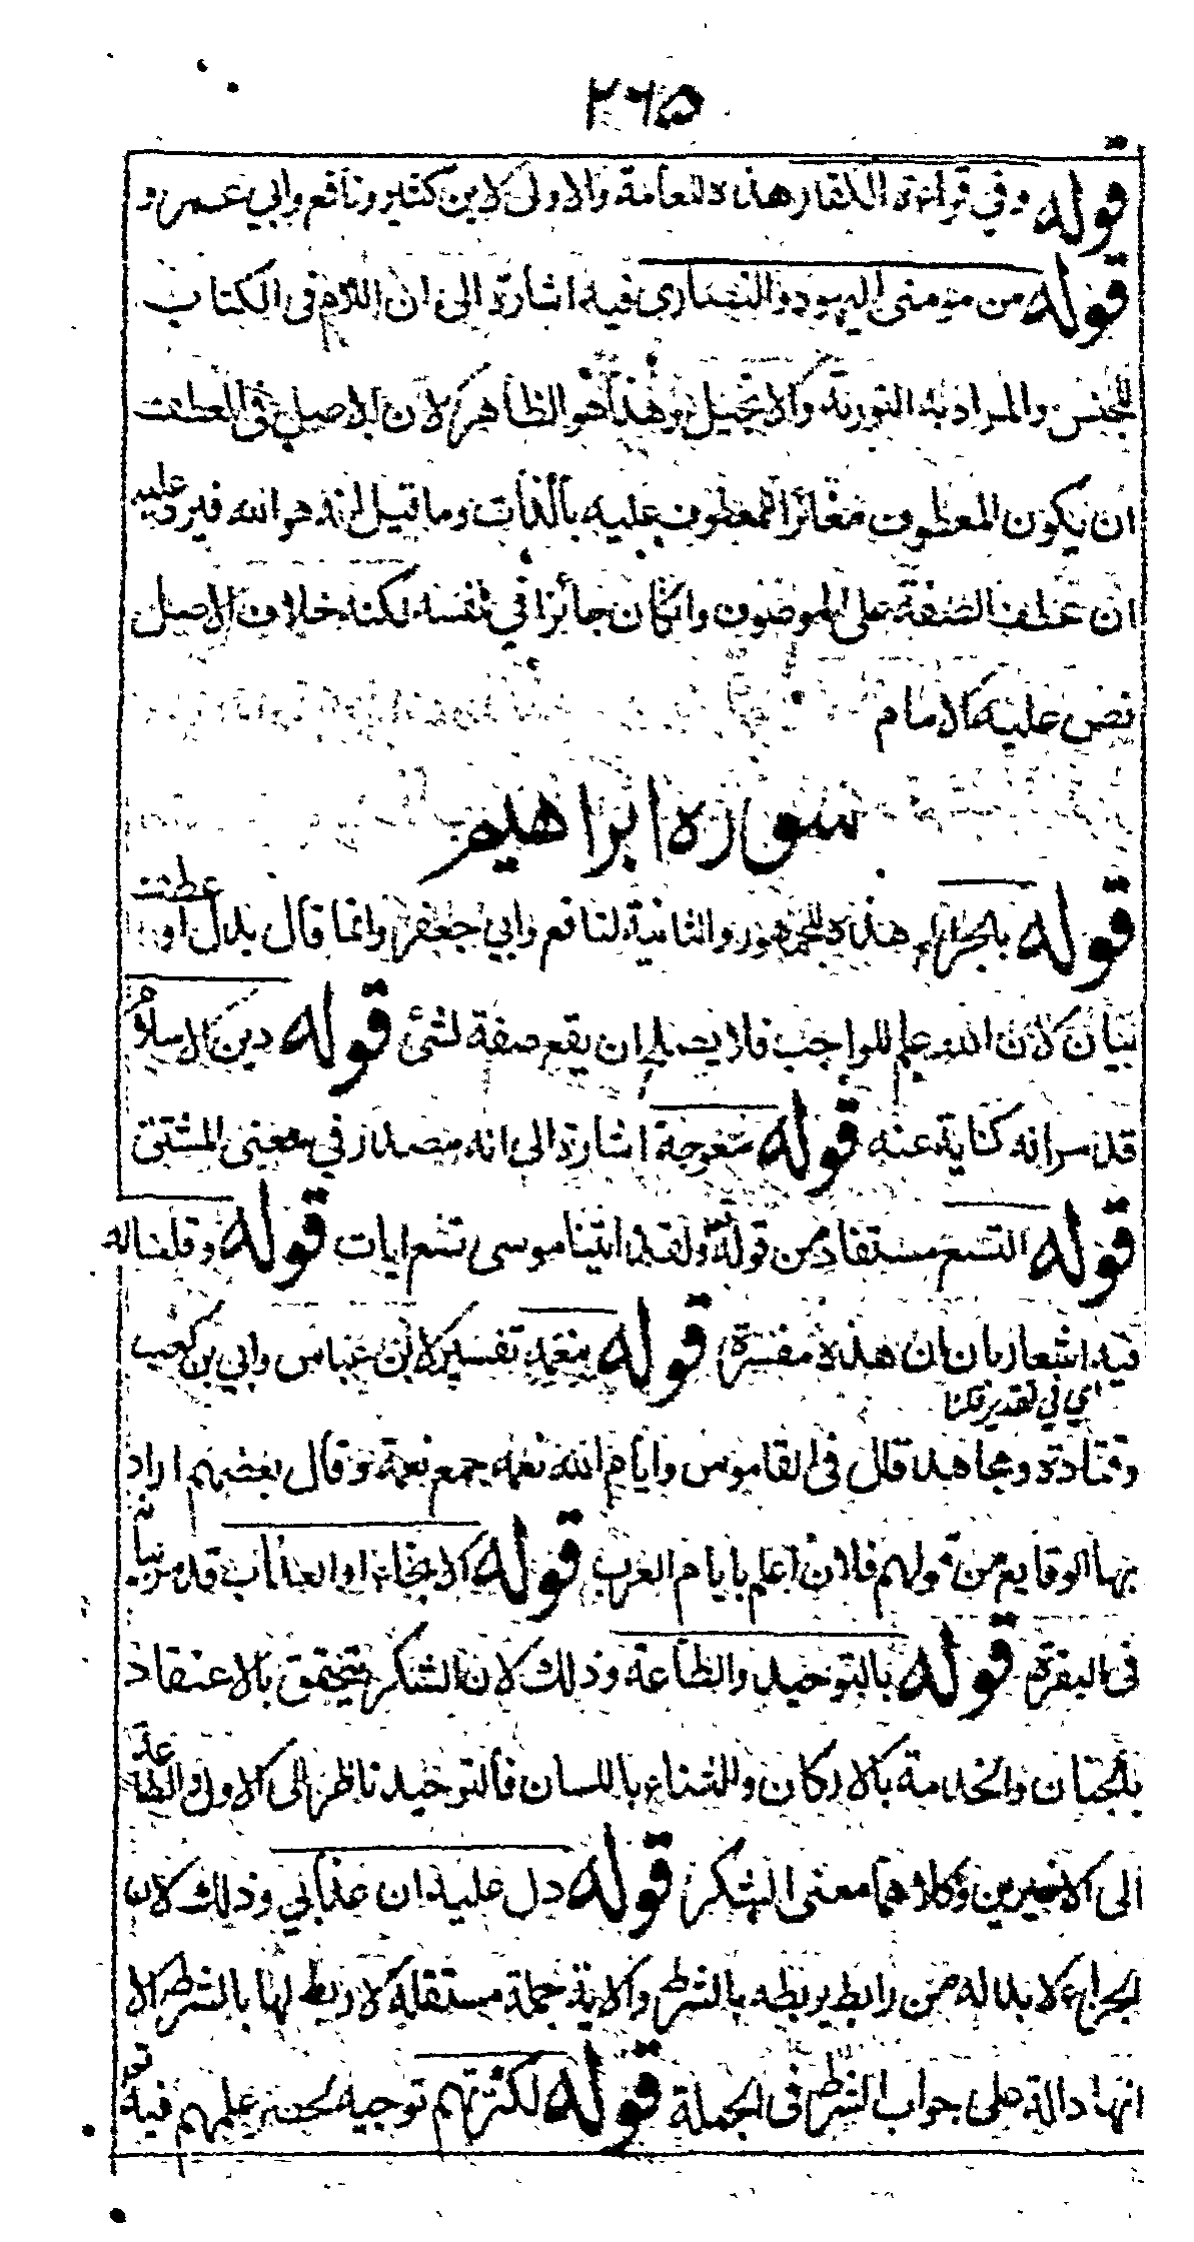 ٢٦٥
قوله وفي قراءة الكفار هذه للعامة والاولى لابن كثير ونافع وابي عمرو
قوله من مؤمنى اليهود والنصارى فيه اشارة الى ان اللام فى الكتاب
للجنس والمراد به التورية والانجيل وهذا هو الظاهر لان الاصل فى العطف
ان يكون المعطوف مغائرا للمعطوف عليه بالذات وما قيل انه هو الله فيرد عليه
ان عطف الصفة على الموصوف وانكان جائزا في نفسه لكنه خلاف الاصل
نص عليه الامام
سورة ابراهيم
قوله بالجر الخ هذه للجمهور والثانية لنافع وابي جعفر وانما قال بدل او عطف
بيان لان الله علم للواجب فلا يصلح ان يقع صفة لشئ قوله دين الاسلام
قد مر انه كناية عنه قوله معوجة اشارة الى انه مصدر في معنى المشتق
قوله التسع مستفاد من قوله ولقد اتينا موسى تسع ايات قوله وقلنا له
فيه اشعار بان ان هذه مفسرة قوله بنعمه تفسير لابن عباس وابي بن كعب
اي في تقدير قلنا
وقتادة ومجاهد قال فى القاموس وايام الله نعمه جمع نعمة وقال بعضهم اراد
بها الوقايع من قولهم فلان اعلم بايام العرب قوله الانجاء او العذاب قد مر بيانه
فى البقرة قوله بالتوحيد والطاعة وذلك لان الشكر يتحقق بالاعتقاد
بالجنان والخدمة بالاركان والثناء باللسان فالتوحيد ناظر الى الاول والطاعة
الى الاخيرين وكلاهما معنى الشكر قوله دل عليه ان عذابي وذلك لان
الجزاء لا بد له من رابط يربطه بالشرط والاية جملة مستقلة لا ربط لها بالشرط الا
انها دالة على جواب الشرط فى الجملة قوله لكثرتهم توجيه لحصر علمهم فيه